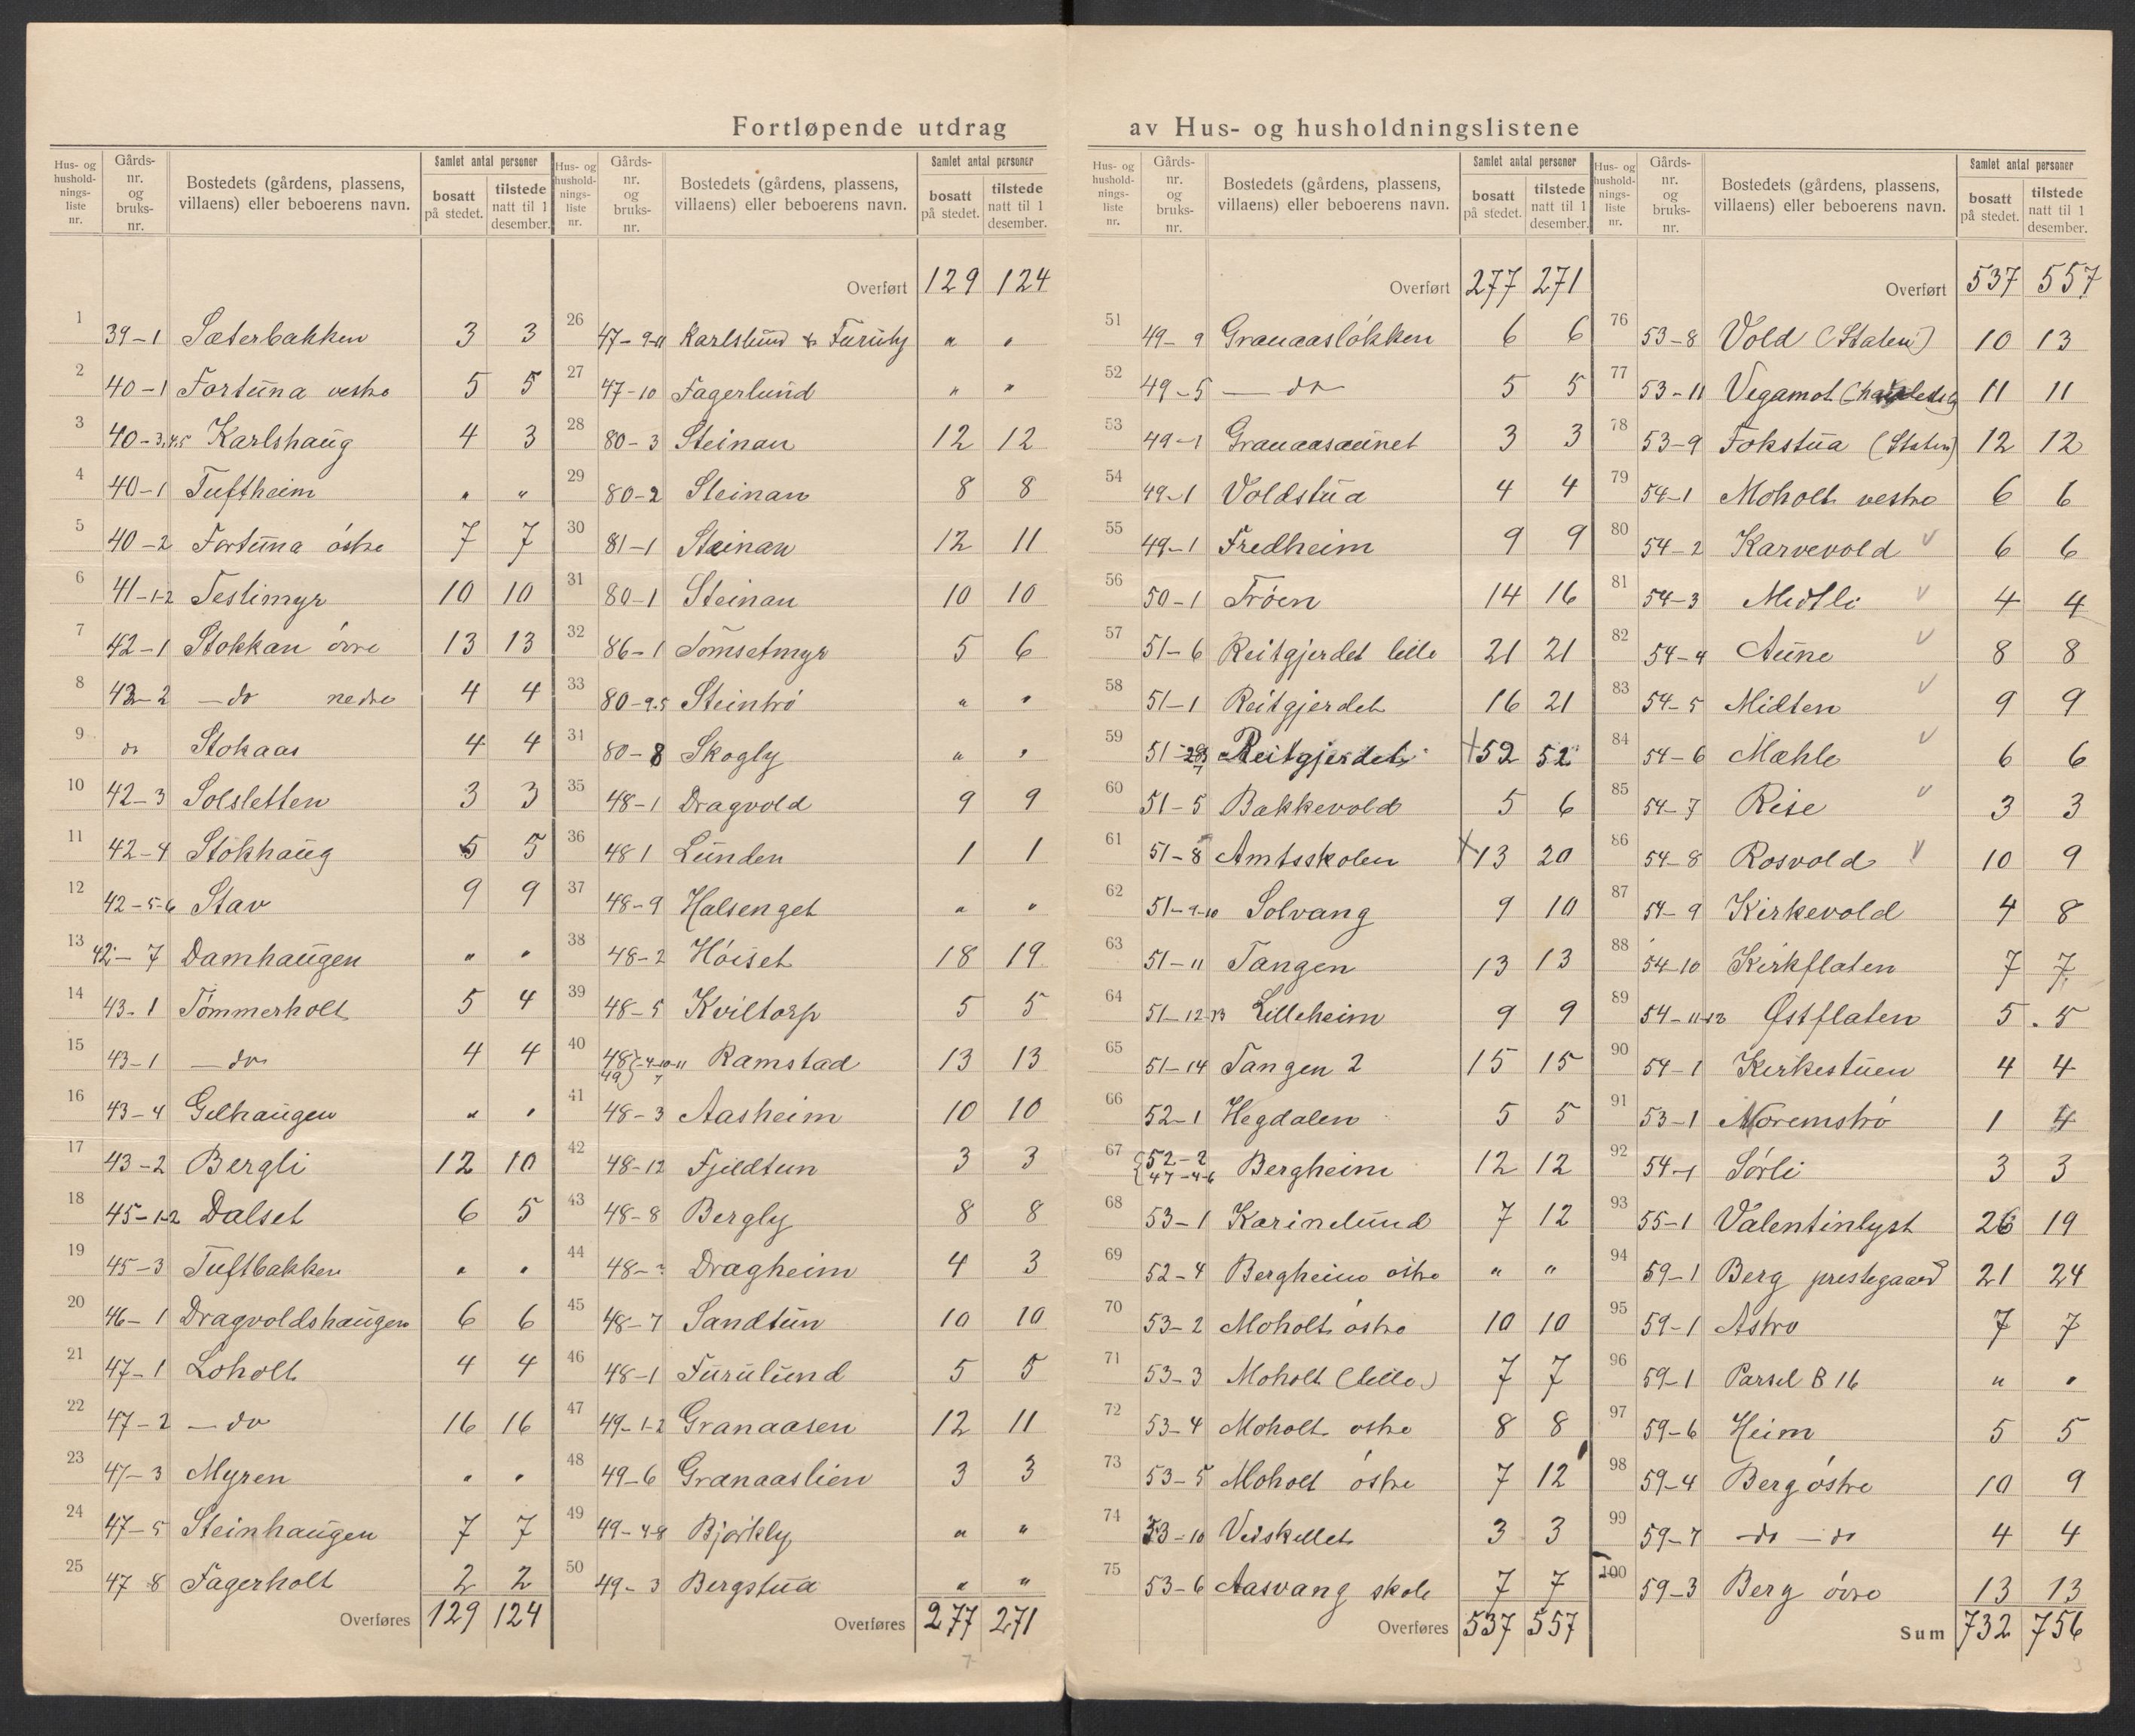 Fortløpende utdrag av Hus- og husholdningslistene
Hus- og husholdningsliste nr. | Gårds-nr. og bruks-nr. | Bostedets (gårdens, plassens, villaens) eller beboerens navn. | Samlet antal personer | bosatt på stedet. | tilstede natt til 1 desember.
1 39-1 Sæterbakken 3 3
2 40-1 Fortuna vestre 5 5
3 40-3,4,5 Karlshaug 4 3
4 40-1 Tuftheim " "
5 40-2 Fortuna östre 7 7
6 41-1-2 Testimyr 10 10
7 42-1 Stokkan övre 13 13
8 42-2 — do nedre 4 4
9 do Stokaas 4 4
10 42-3 Solsletten 3 3
11 42-4 Stokhaug 5 5
12 42-5-6 Stav 9 9
13 42-7 Damhaugen " "
14 43-1 Tömmerholt 5 4
15 43-1 — do 4 4
16 43-4 Gilhaugen " "
17 43-2 Bergli 12 10
18 45-1-2 Dalset 6 5
19 45-3 Tuftbakken " "
20 46-1 Dragvoldshaugen 6 6
21 47-1 Loholt 4 4
22 47-2 — do 16 16
23 47-3 Myren " "
24 47-5 Steinhaugen 7 7
25 47 8 Fagerholt 2 2
Overføres 129 124
Hus- og husholdningsliste nr. | Gårds-nr. og bruks-nr. | Bostedets (gårdens, plassens, villaens) eller beboerens navn. | Samlet antal personer | bosatt på stedet. | tilstede natt til 1 desember.
Overført 129 124
26 47-9-11 Karlslund & Furuly " "
27 47-10 Fagerlund " "
28 80-3 Steinan 12 12
29 80-2 Steinan 8 8
30 81-1 Steinan 12 11
31 80-1 Steinan 10 10
32 86-1 Tömsetmyr 5 6
33 80-9.5 Steintrö " "
31 80-8 Skogly " "
35 48-1 Dragvold 9 9
36 48 1 Lunden 1 1
37 48-9 Halsenget " "
38 48-2 Höiset 18 19
39 48-5 Kviltorp 5 5
40 48 49 -4-10-11 7 Ramstad 13 13
41 48-3 Aasheim 10 10
42 48-12 Fjeldtun 3 3
43 48-8 Bergly 8 8
44 48- Dragheim 4 3
45 48-7 Sandtun 10 10
46 48-1 Furulund 5 5
47 49-1-2 Granaasen 12 11
48 49-6 Granaaslien 3 3
49 49-4-8 Björkly " "
50 49-3 Bergstua " "
Overføres 277 271
Hus- og husholdningsliste nr. | Gårds-nr. og bruks-nr. | Bostedets (gårdens, plassens, villaens) eller beboerens navn. | Samlet antal personer | bosatt på stedet. | tilstede natt til 1 desember.
Overført 277 271
51 49-9 Granaaslökken 6 6
52 49-5 — do 5 5
53 49-1 Granaasaunet 3 3
54 49-1 Voldstua 4 4
55 49-1 Fredheim 9 9
56 50-1 Tröen 14 16
57 51-6 Reitgjerdet lille 21 21
58 51-1 Reitgjerdet 16 21
59 51- Reitgjerdet 52 52
60 51-5 Bakkevold 5 6
61 51-8 Amtsskolen 13 20
62 51-9-10 Solvang 9 10
63 51-11 Tangen 13 13
64 51-12-13 Lilleheim 9 9
65 51-14 Tangen 2 15 15
66 52-1 Hegdalen 5 5
67 52-2 47-4-6 Bergheim 12 12
68 53-1 Karinelund 7 12
69 52-4 Bergheim östre " "
70 53-2 Moholt östre 10 10
71 53-3 Moholt (lille) 7 7
72 53-4 Moholt ostre 8 8
73 53-5 Moholt östre 7 12
74 53-10 Veiskellet 3 3
75 53-6 Aasvang skole 7 7
Overføres 537 557
Hus- og husholdningsliste nr. | Gårds-nr. og bruks-nr. | Bostedets (gårdens, plassens, villaens) eller beboerens navn. | Samlet antal personer | bosatt på stedet. | tilstede natt til 1 desember.
Overført 537 557
76 53-8 Vold (Staten) 10 13
77 53-11 Vegamot 11 11
78 53-9 Fokstua (Staten) 12 12
79 54-1 Moholt vestre 6 6
80 54-2 Karvevold 6 6
81 54-3 Midtli 4 4
82 54-4 Aune 8 8
83 54-5 Midten 9 9
84 54-6 Mæhle 6 6
85 54-7 Rise 3 3
86 54-8 Rosvold 10 9
87 54-9 Kirkevold 4 8
88 54-10 Kirkflaten 7 7
89 54-11-12 Østflaten 5 . 5
90 54-1 Kirkestuen 4 4
91 53-1 Moremströ 1 4
92 54-1 Sörli 3 3
93 55-1 Valentinlyst 26 19
94 59-1 Berg prestegaard 21 24
95 59-1 Astro 7 7
96 59-1 Parsel B 16 " "
97 59-6 Heim 5 5
98 59-4 Berg östre 10 9
99 59-7 — do — do 4 4
100 59-3 Berg övre 13 13
Sum 732 756